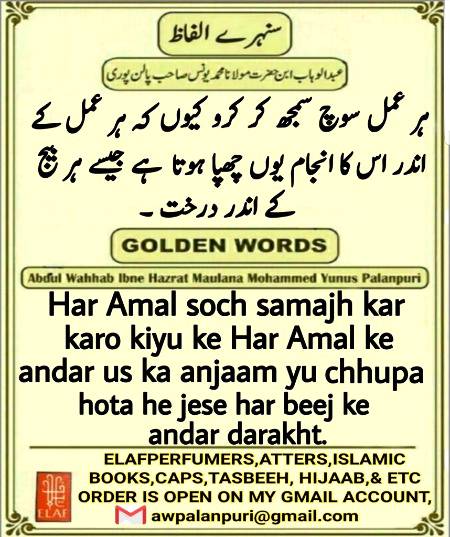 سنہرے الفاظ
عبدالوہاب ابن حضرت مولانا محمد یونس صاحب پالن پوری
ہر عمل سوچ سمجھ کر کرو کیوں کہ ہر عمل کے
اندر اس کا انجام یوں چھپا ہوتا ہے جیسے ہر بیج
کے اندر درخت ۔
GOLDEN WORDS
Abdul Wahhab Ibne Hazrat Maulana Mohammed Yunus Palanpuri
Har Amal soch samajh kar
karo kiyu ke Har Amal ke
andar us ka anjaam yu chhupa
hota he jese har beej ke
andar darakht.
ELAFPERFUMERS,ATTERS,ISLAMIC
BOOKS,CAPS,TASBEEH, HIJAAB,& ETC
ORDER IS OPEN ON MY GMAIL ACCOUNT,
awpalanpuri@gmail.com
ELAF